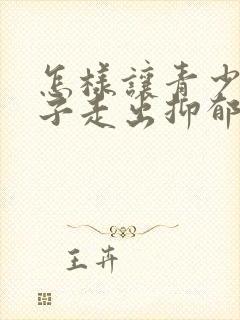 怎樣讓青少
子走出抑郁
王卉